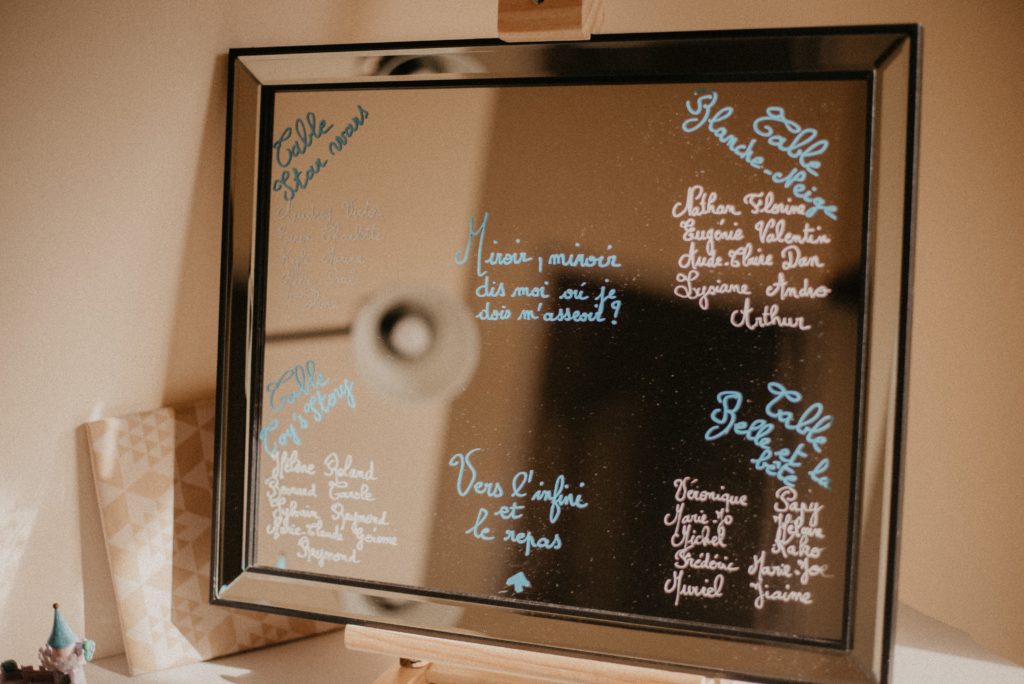 Table
Star wars
Miroir, miroir
dis moi où je
dois m'asseoir?
Table
Blanche-Neige
Nathan Florine
Eugénie Valentin
Aude-Claire Dan
Lysiane Andro
Arthur
Table
Toy's Story
Hélène Roland
Bernard Carole
Sylvain Raymond
Marie-Claude Gérome
Raymond
Vers l'infini
et
le repas
Table
Belle et la
bête
Véronique Papy
Marie-Jo
Michel Kako
Frédéric Marie-Joe
Muriel Jiaime